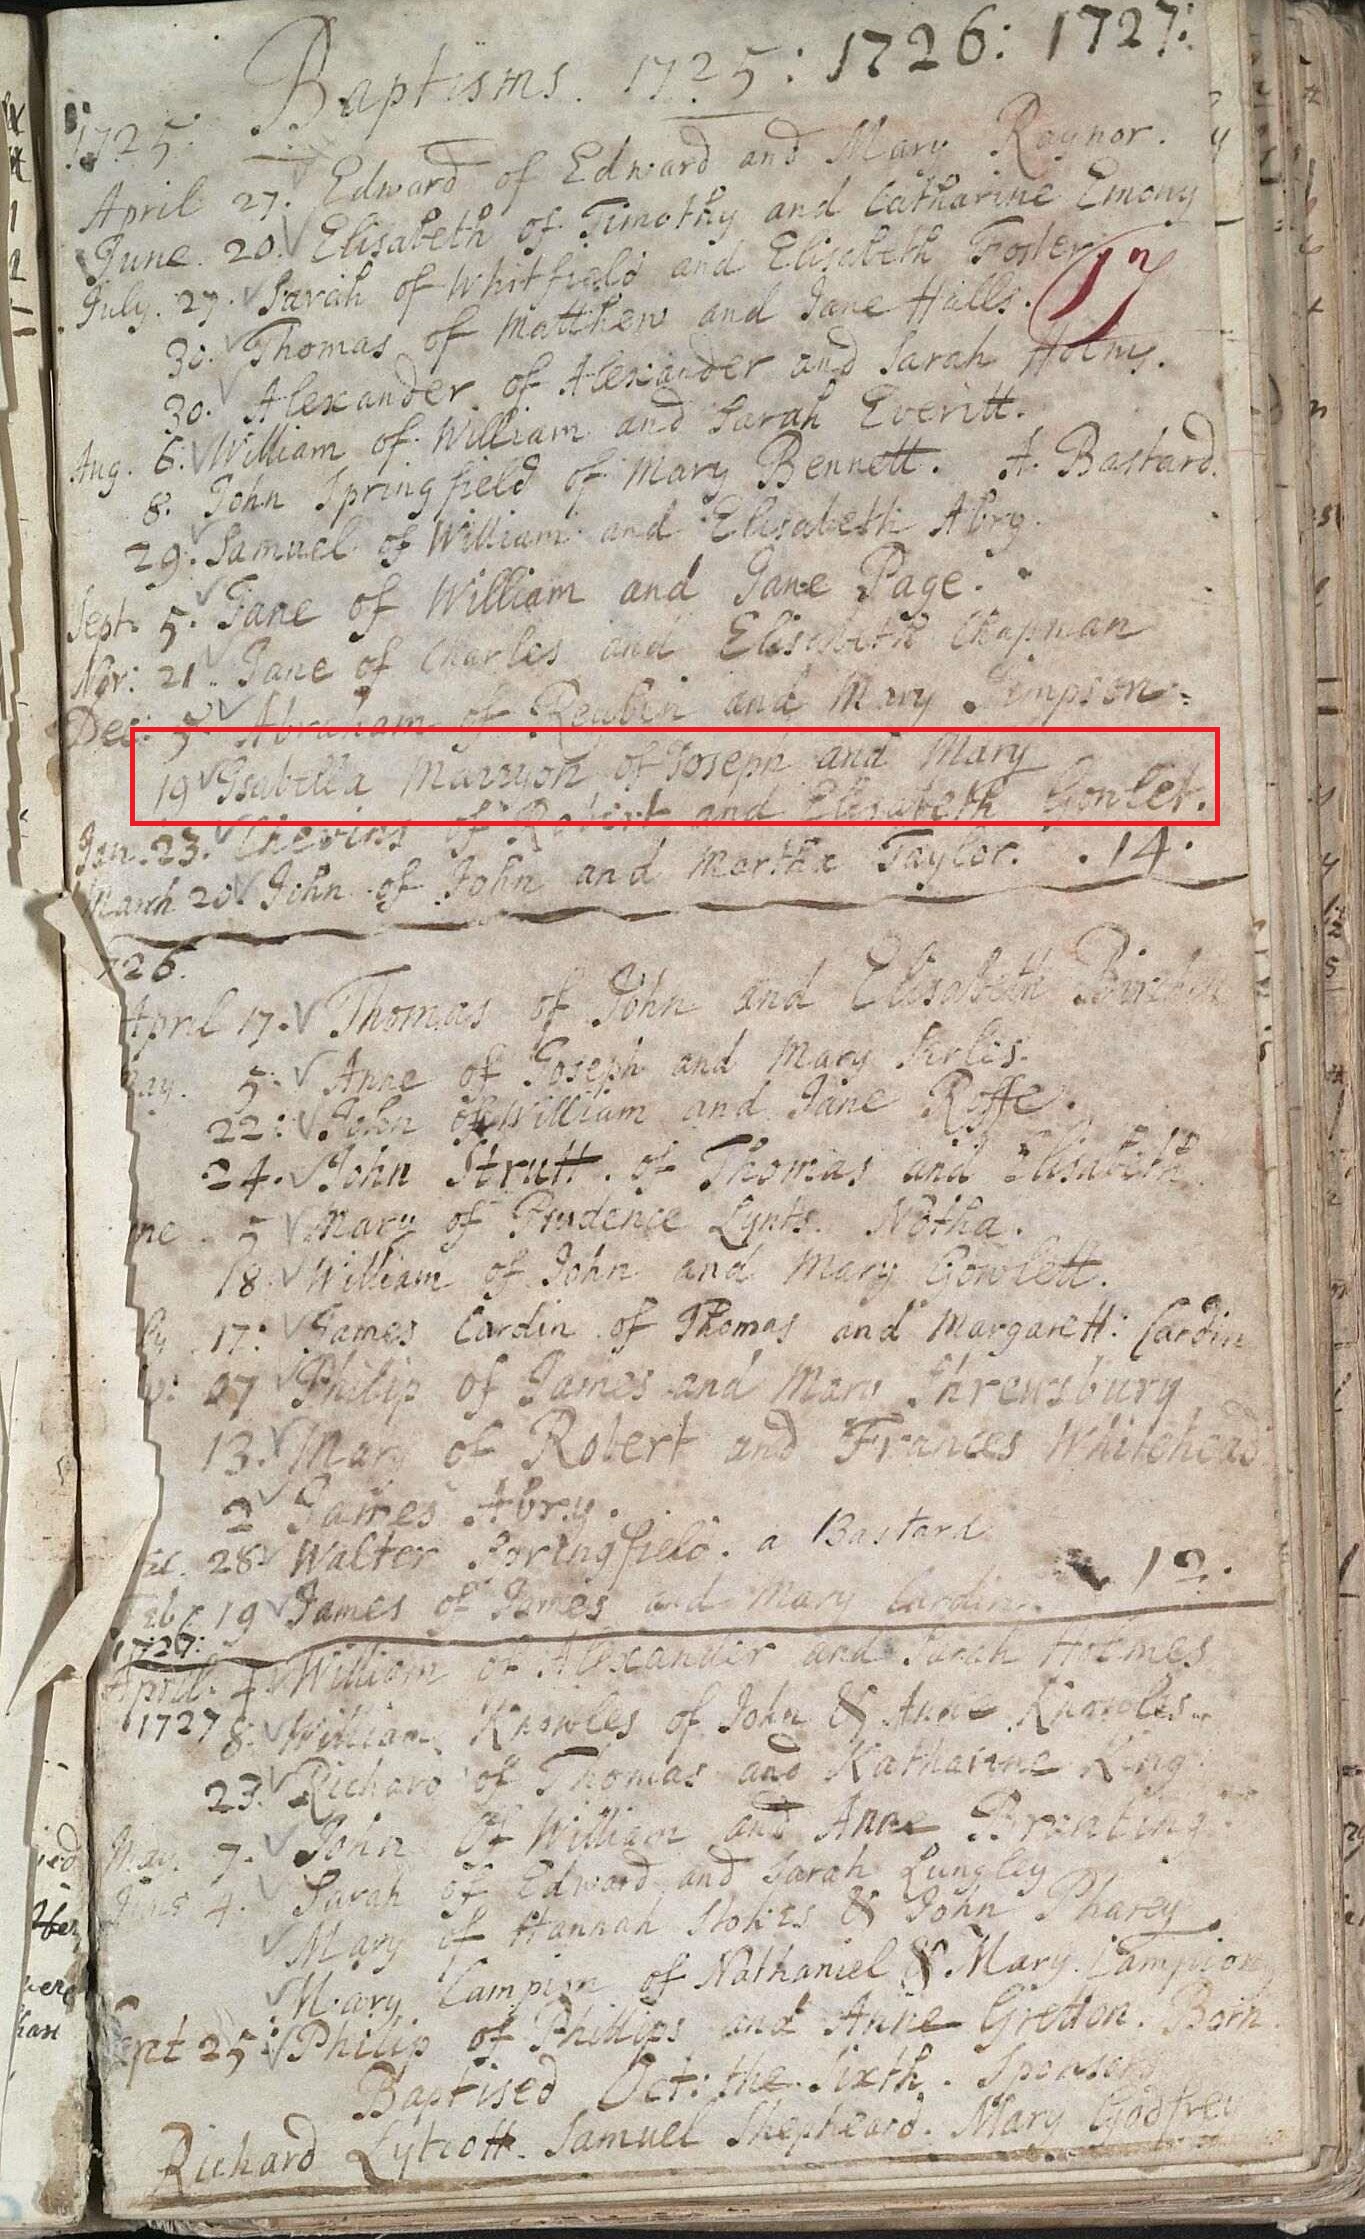 Baptisms. 1725: 1726: 1727:
1725.
April 27. Edward of Edward and Mary Raynor.
June. 20. Elisabeth of Timothy and Catharine Emony
July. 27. Sarah of Whitfield and Elisabeth Foster
17
30. Thomas of Matthew and Jane Halls.
30. Alexander of Alexander and Sarah Holms.
Aug. 6. William of William and Sarah Everitt.
8. John Springfield of Mary Bennett. A Bastard.
29. Samuel of William and Elisabeth Abry.
Sept. 5. Jane of William and Jane Page.
Nov: 21. Jane of Charles and Elisabeth Chapman
Dec: 5 Abraham of Reubin and Mary Simpson
19 Isabella Marryon of Joseph and Mary
Jan. 23. of Robert and Elisabeth Gowlet.
March 20. John of John and Martha Taylor. . 14.
726.
April 17. Thomas of John and Elisabeth
ay. 5. Anne of Joseph and Mary
22: John of William and Jane Roffe.
24. John Strutt. of Thomas and Elisabeth.
ne. 5 Mary of Prudence Lynts. Notha.
18. William of John and Mary Gowlett.
ly. 17: James Cardin of Thomas and Margarett: Cardin
27 Philip of James and Mary Shrewsbury
13. Mary of Robert and Frances Whitehead
2 James Abry.
28 Walter Springfield. a Bastard
Feb. 19 James of James and Mary Cardin. 12.
1727:
April. William of Alexander and Sarah Holmes
1727 8. William Knowles of John & Anne Knowles.
23. Richard of Thomas and Katharine King.
May. 7. John of William and Anne Brunting.
June 4. Sarah of Edward and Sarah Lungley
Mary of Hannah Stokes & John Pharey.
Mary Campion of Nathaniel & Mary Campion
Sept 25: Philip of Phillips and Anne Gretton. Born.
Baptised Oct: the Sixth. Sponsers
Richard Lytcott. Samuel Shepheard. Mary Godfrey